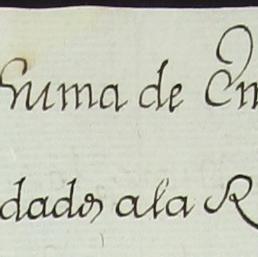 Suma de Em
dados ala R